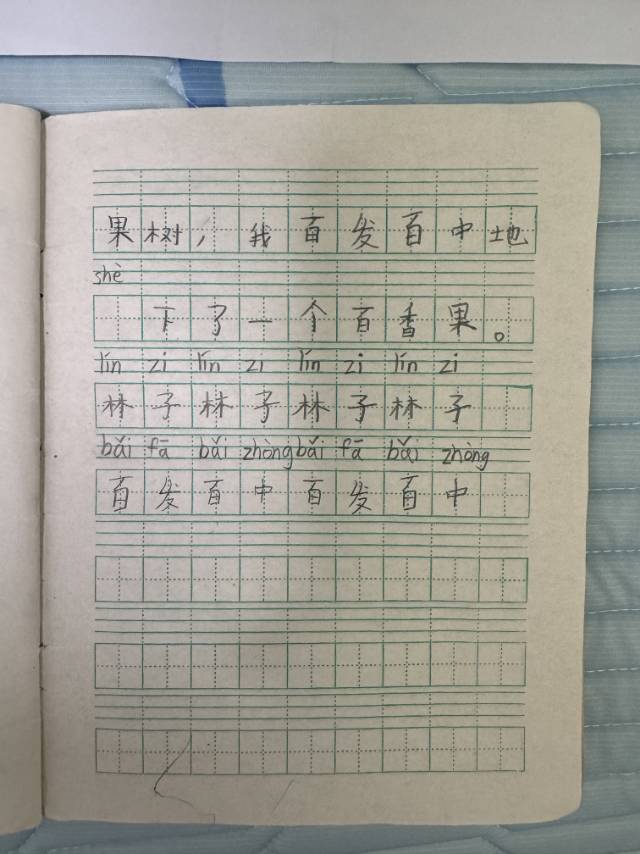 果树，我百发百中地
shè
下了一个百香果。
lín zi lín zi lín zi lín zi
林子林子林子林子
bǎi fā bǎi zhòng bǎi fā bǎi zhòng
百发百中百发百中